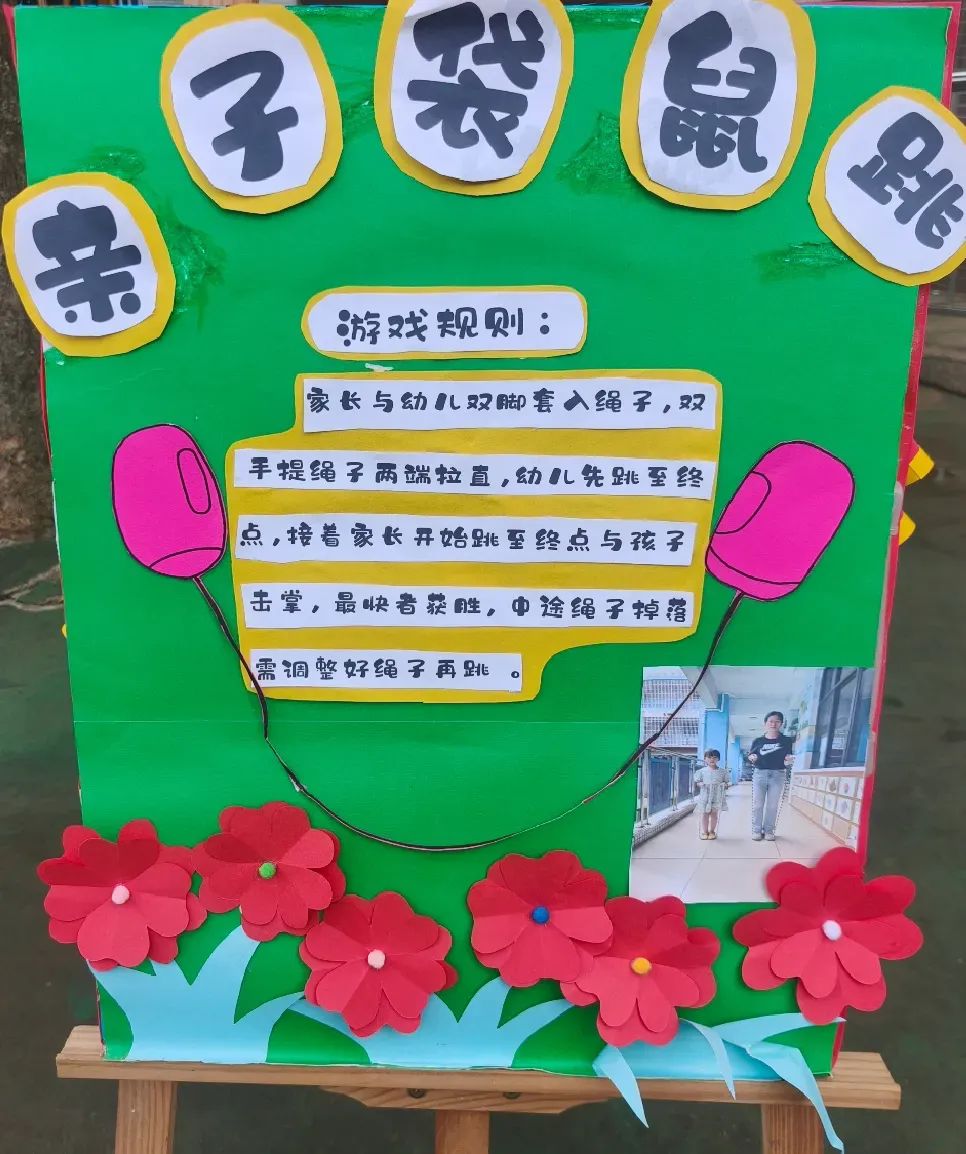 亲子袋鼠跳
游戏规则：
家长与幼儿双脚套入绳子，双
手提绳子两端拉直，幼儿先跳至终
点，接着家长开始跳至终点与孩子
击掌，最快者获胜，中途绳子掉落
需调整好绳子再跳。